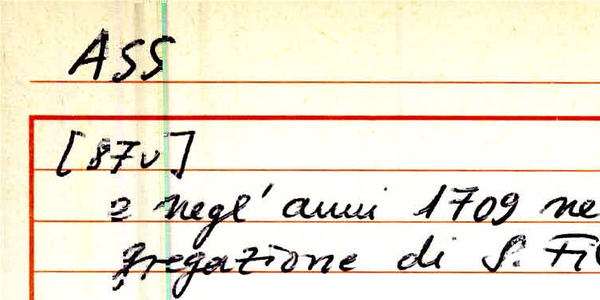 ASS
[87v]
e negl' anni 1709 ne
gregazione di S. Fi